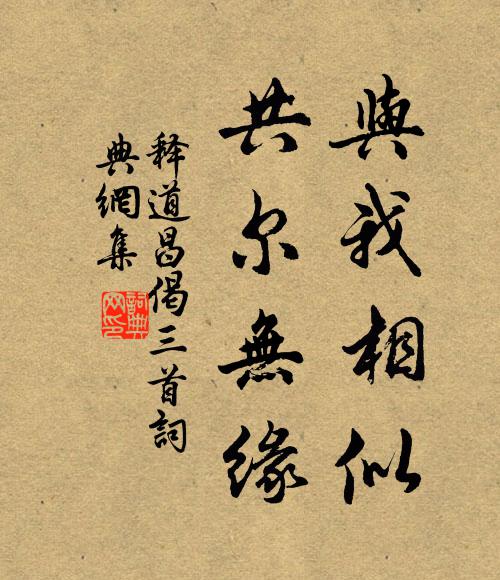 與我相似
共尔無緣
释道昌偈三首詞
典網集
詞典
网印